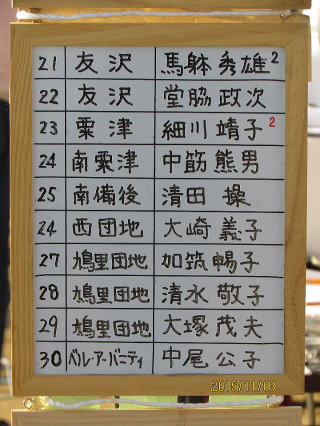 21 友沢 馬躰秀雄 2
22 友沢 堂脇政次
23 粟津 細川靖子 2
24 南粟津 中筋熊男
25 南備後 清田 操
24 西団地 大崎義子
27 鳩里団地 加筑暢子
28 鳩里団地 清水敬子
29 鳩里団地 大塚茂夫
30 ベル・アーバニティ 中尾公子
2015/11/03